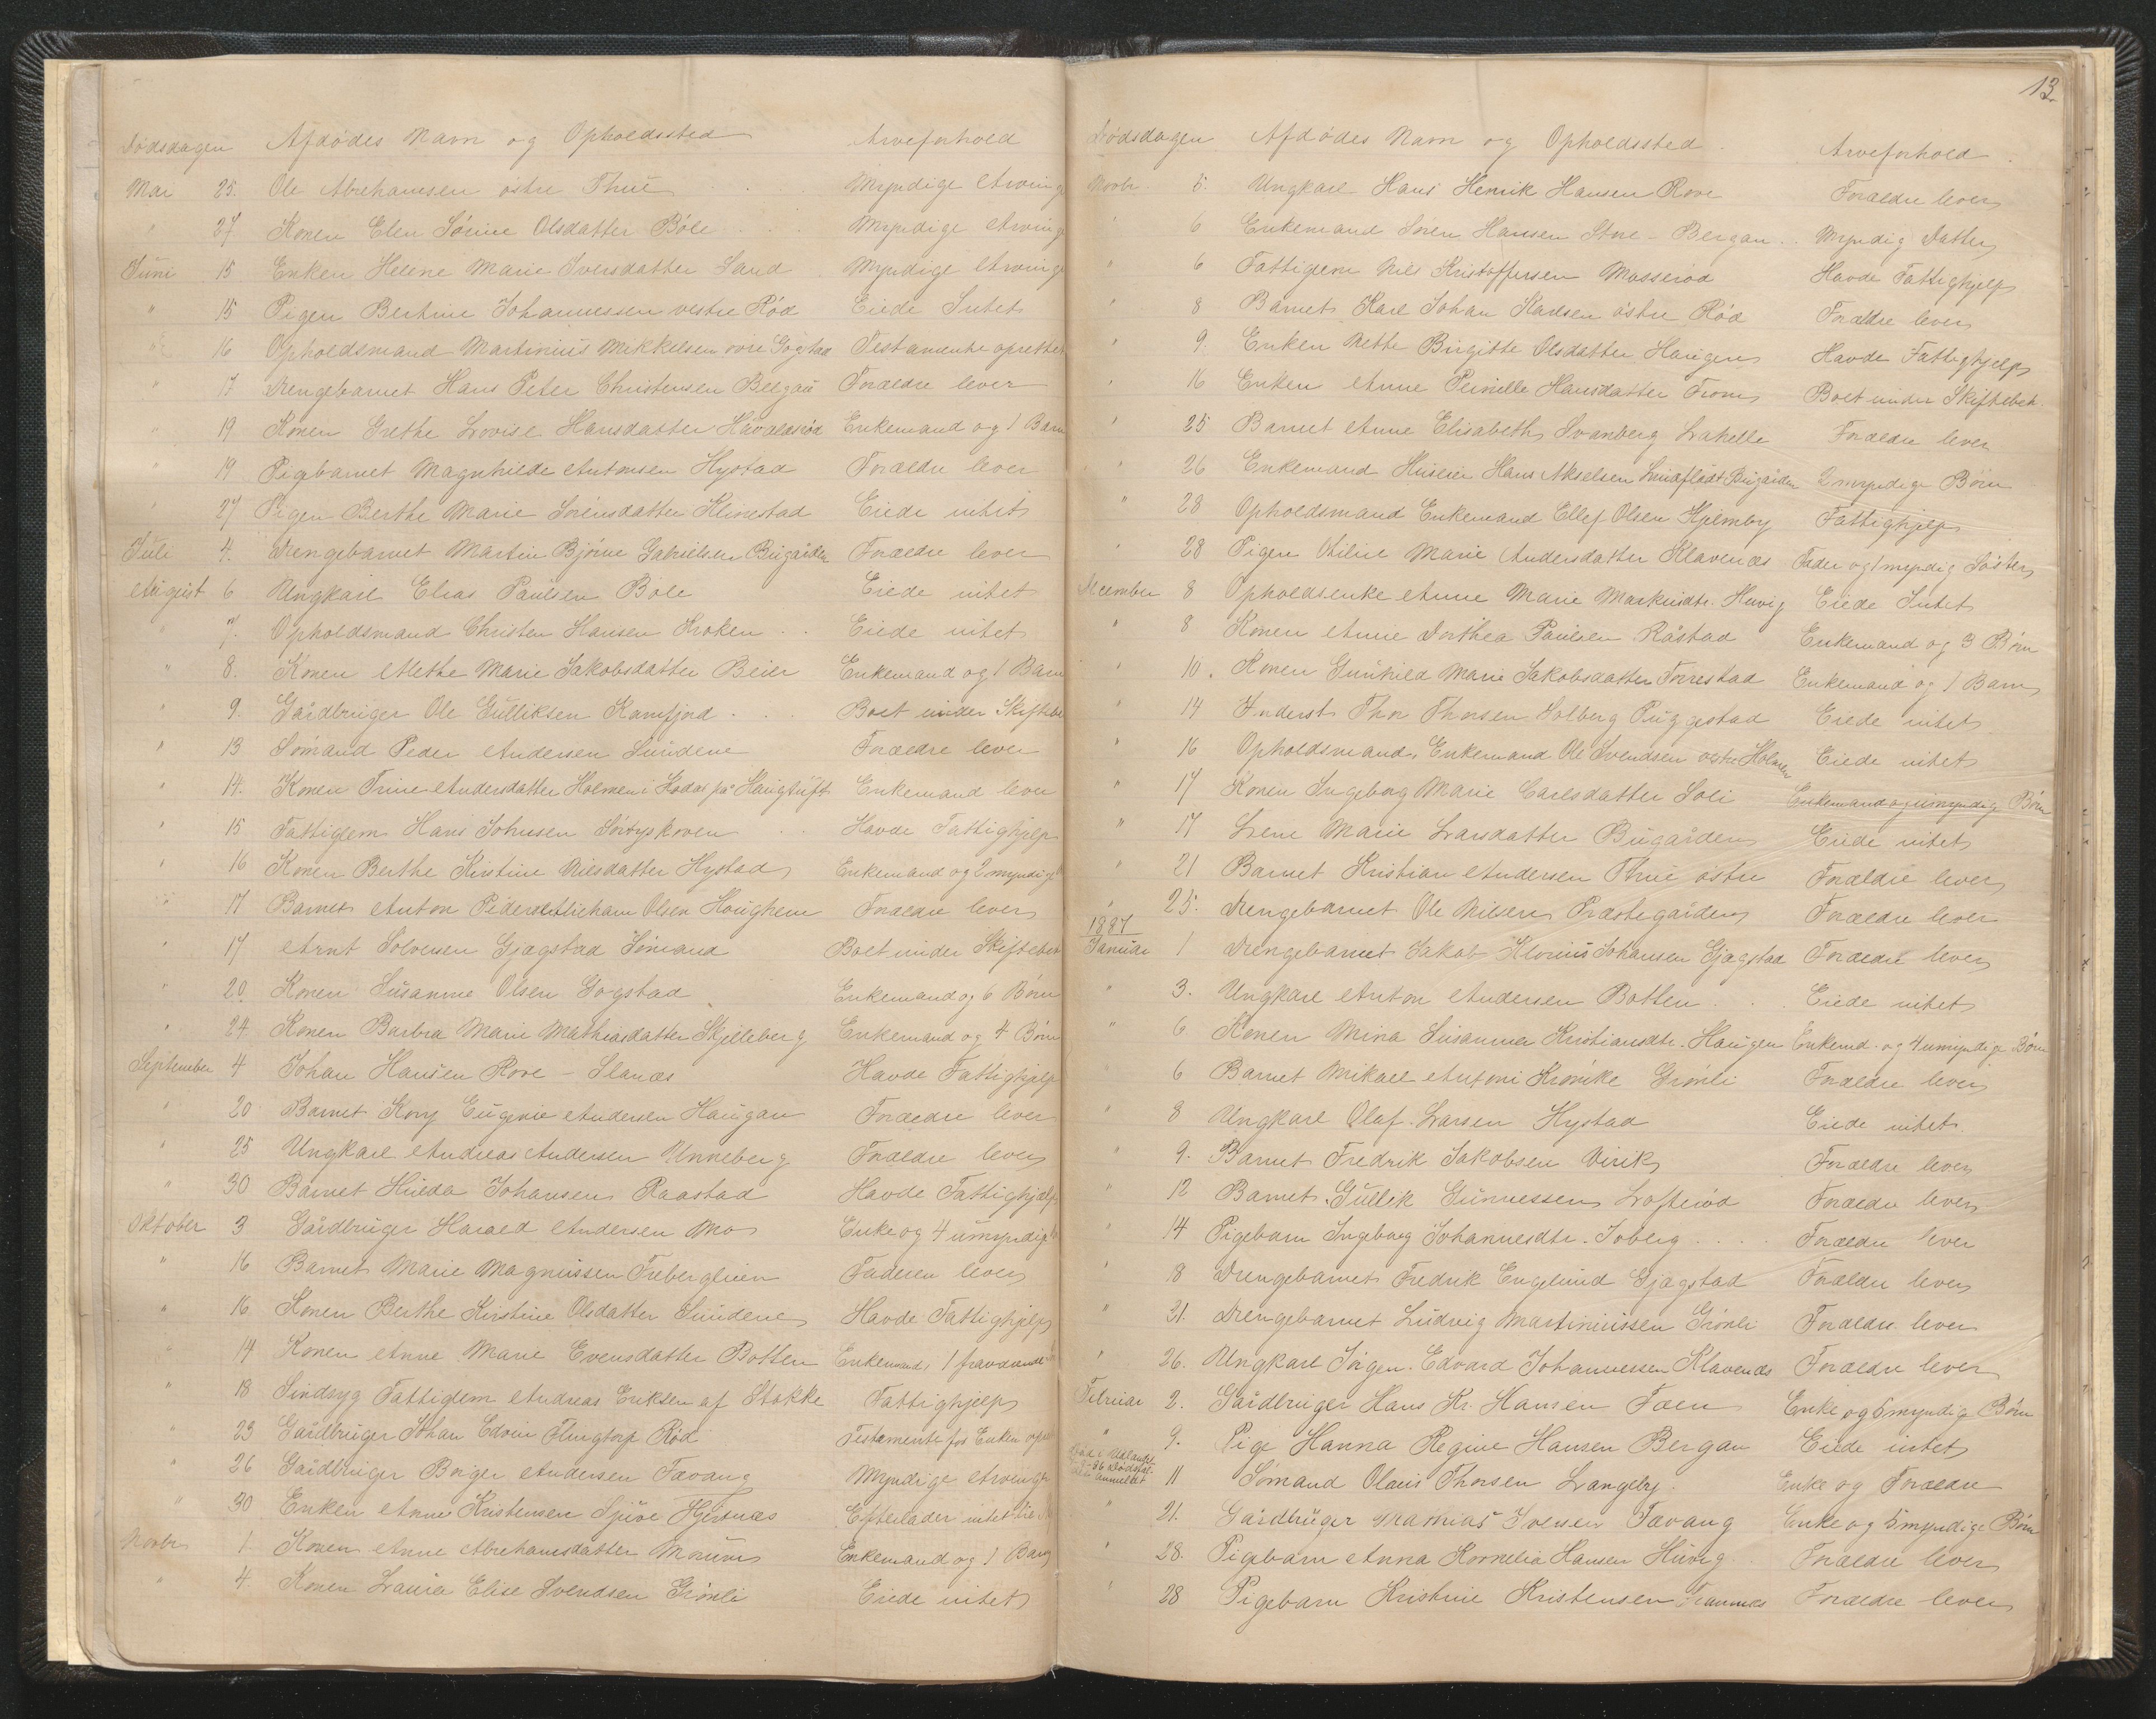 Dödsdagen Afdödes Navn og Opholdssted Arveforhold
Mai 25. Ole Abrehamsen östre Thue . . Myndige Arvinge
" 27 Konen Elen Sörine Olsdatter Böle . . . Myndige Arvinge
Juni 15 Enken Helene Marie Iversdatter Sand . Myndige Arvinge
" 15 Pigen Bertine Johannessen vestre Röd Eiede Intet
" 16 Opholdsmand Martinius Mikkelsen övre Gogstad Testamente oprettet
" 17 Drengebarnet Hans Peter Christensen Bergan Forældre lever
" 19 Konen Grethe Lovise Hansdatter Havaldsröd Enkemand og 1 Barn
" 19 Pigbarnet Magnhilde Antonsen Hystad Forældre lever
" 27 Pigen Berthe Marie Sörensdatter Klinestad Eiede intet
Juli 4. Drengebarnet Martin Bjönne Gabrielsen Bugården Forældre lever
August 6 Ungkarl Elias Paulsen Böle Eiede intet
" 7. Opholdsmand Christen Hansen Kroken . . Eiede intet
" 8. Konen Methe Marie Jakobsdatter Beier Enkemand og 1 Barn
" 9. Gårdbruger Ole Gulliksen Kamfjord . . . Boet under Skiftebe
" 13 Sömand Peder Andersen Sundene Forældre lever
" 14. Konen Trine Andersdatter Holmen i Hodal på Haugtuft Enkemand lever
" 15 Fattiglem Hans Johnsen Sörtyskoven . . Havde Fattighjelp
" 16 Konen Berthe Kirstine Nilsdatter Hystad Enkemand og 2 myndige
" 17 Barnet Anton Pedersen Olsen Haughem Forældre lever
" 17 Arnt Solversen Gjogstad Sömand Boet under Skiftebeh
" 20 Konen Susanne Olsen Gogstad Enkemand og 6 Börn
" 24 Konen Barbra Marie Mathiasdatter Skjelleberg Enkemand og 4 Börn
September 4 Johan Hansen Rove - Slanæs Havde Fattighjelp
" 20 Barnet Kony Eugenie Andersen Haugan Forældre lever
" 25 Ungkarl Andreas Andersen Unneberg Forældre lever
" 30 Barnet Hilda Johansen Raastad Havde Fattighjælp
Oktober 3 Gårdbruger Harald Andersen Mo Enke og 4 umyndig
" 16 Barnet Marie Magnussen Freberglien Faderen lever
" 16 Konen Berthe Kirstine Olsdatter Sundene Havde Fattighjelp
" 14 Konen Anne Marie Evensdatter Botten Enkemand, 1
" 18 Sindsyg Fattiglem Andreas Eriksen af Stokke Fattighjelp
" 23 Gårdbruger Johan Edvin Olingtorp Röd Testamente fra Enken
" 26 Gårdbruger Börger Andersen Fævang Myndige Arvinger
" 30 Enken Anne Kristensen Sjuve Hjertnæs Efterlader intet
Novbr 1 Konen Anne Abrehamsdatter Mörum Enkemand og 1 Barn
" 4. Konen Laura Elise Svendsen Grönli Eiede intet
13
Dödsdagen Afdödes Navn og Opholdssted . Arveforhold .
Novbr. 5. Ungkarl Hans Henrik Hansen Rove Forældre lever
" 6 Enkemand Sören Hansen Store - Bergan . . Myndig Datter
" 6 Fattiglem Nils Kristoffersen Masseröd Havde Fattighjelp
" 8 Barnet Karl Johan Karlsen östre Röd Forældre lever
" 9. Enken Mette Birgitte Olsdatter Haugen Havde Fattighjelp
" 16 Enken Anne Pernille Hansdatter From Boet under Skiftebeh.
" 25 Barnet Anne Elisabeth Svanberg Lahelle Forældre lever
" 26 Enkemand Huseier Hans Akselsen Lindflödt Bugården 2 myndige Börn
" 28 Opholdsmand Enkemand Ellef Olsen Hjelmby Fattighjelp
" 28 Pigen Oline Marie Andersdatter Klavenæs Fader og 1 myndig Söster
December 8 Opholdsenke Anne Marie Markusdtr. Huvig Eiede Intet
" 8 Konen Anne Dorthea Paulsen Råstad Enkemand og 3 Börn
" 10. Konen Gunhild Marie Jakobsdatter Forrestad Enkemand og 1 Barn
" 14 Inderst Thor Thorsen Solberg Puggestad Eiede intet
" 16 Opholdsmand, Enkemand Ole Svendsen östre Holmen Eiede intet
" 17 Konen Ingeborg Marie Carlsdatter Soli Enkemand og umyndige Börn
" 17 Lene Marie Larsdatter Bugården Eiede intet
" 21 Barnet Kristian Andersen Thue östre Forældre lever
" 25. Drengebarnet Ole Nilsen Præstegården Forældre lever
1887
Januar 1 Drengebarnet Jakob Klorius Johansen Gjogstad Forældre lever
" 3. Ungkarl Anton Andersen Botten . . . Eiede intet
" 6 Konen Mina Susanna Kristiansdtr. Haugen Enkemd. og 4 umyndige Börn
" 6 Barnet Mikael Antoni Krönike Grönli Forældre lever
" 8 Ungkarl Olaf Larsen Hystad Eiede intet.
" 9. Barnet Fredrik Jakobsen Virik Forældre lever
" 12 Barnet Gullik Gunnessen Lofteröd Forældre lever
" 14 Pigebarn Ingeborg Johannesdtr. Joberg . . . . Forældre lever
" 18 Drengebarnet Fredrik Engelund Gjogstad Forældre lever
" 21. Drengebarnet Ludvig Martiniussen Grönli Forældre lever
" 26. Ungkarl Jörgen Edvard Johannessen Klavenæs Forældre lever
Februar 2. Gårdbruger Hans Kr. Hansen Foen Enke og 6 myndige Börn
" 9. Pige Hanna Regine Hansen Bergan Eiede intet
Död i Udlandet -86 Dödsfaldet anmeldt 11 Sömand Olaus Thorsen Langeby. Enke og Forældre
" 21. Gårdbruger Mathias Iversen Fævang Enke og 5 myndige Börn
" 28. Pigebarn Anna Kornelia Hansen Huvig . Forældre lever
" 28 Pigebarn Kristine Kristensen Framnæs Forældre lever